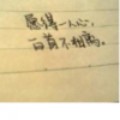 愿得一人心，
白首不相离。